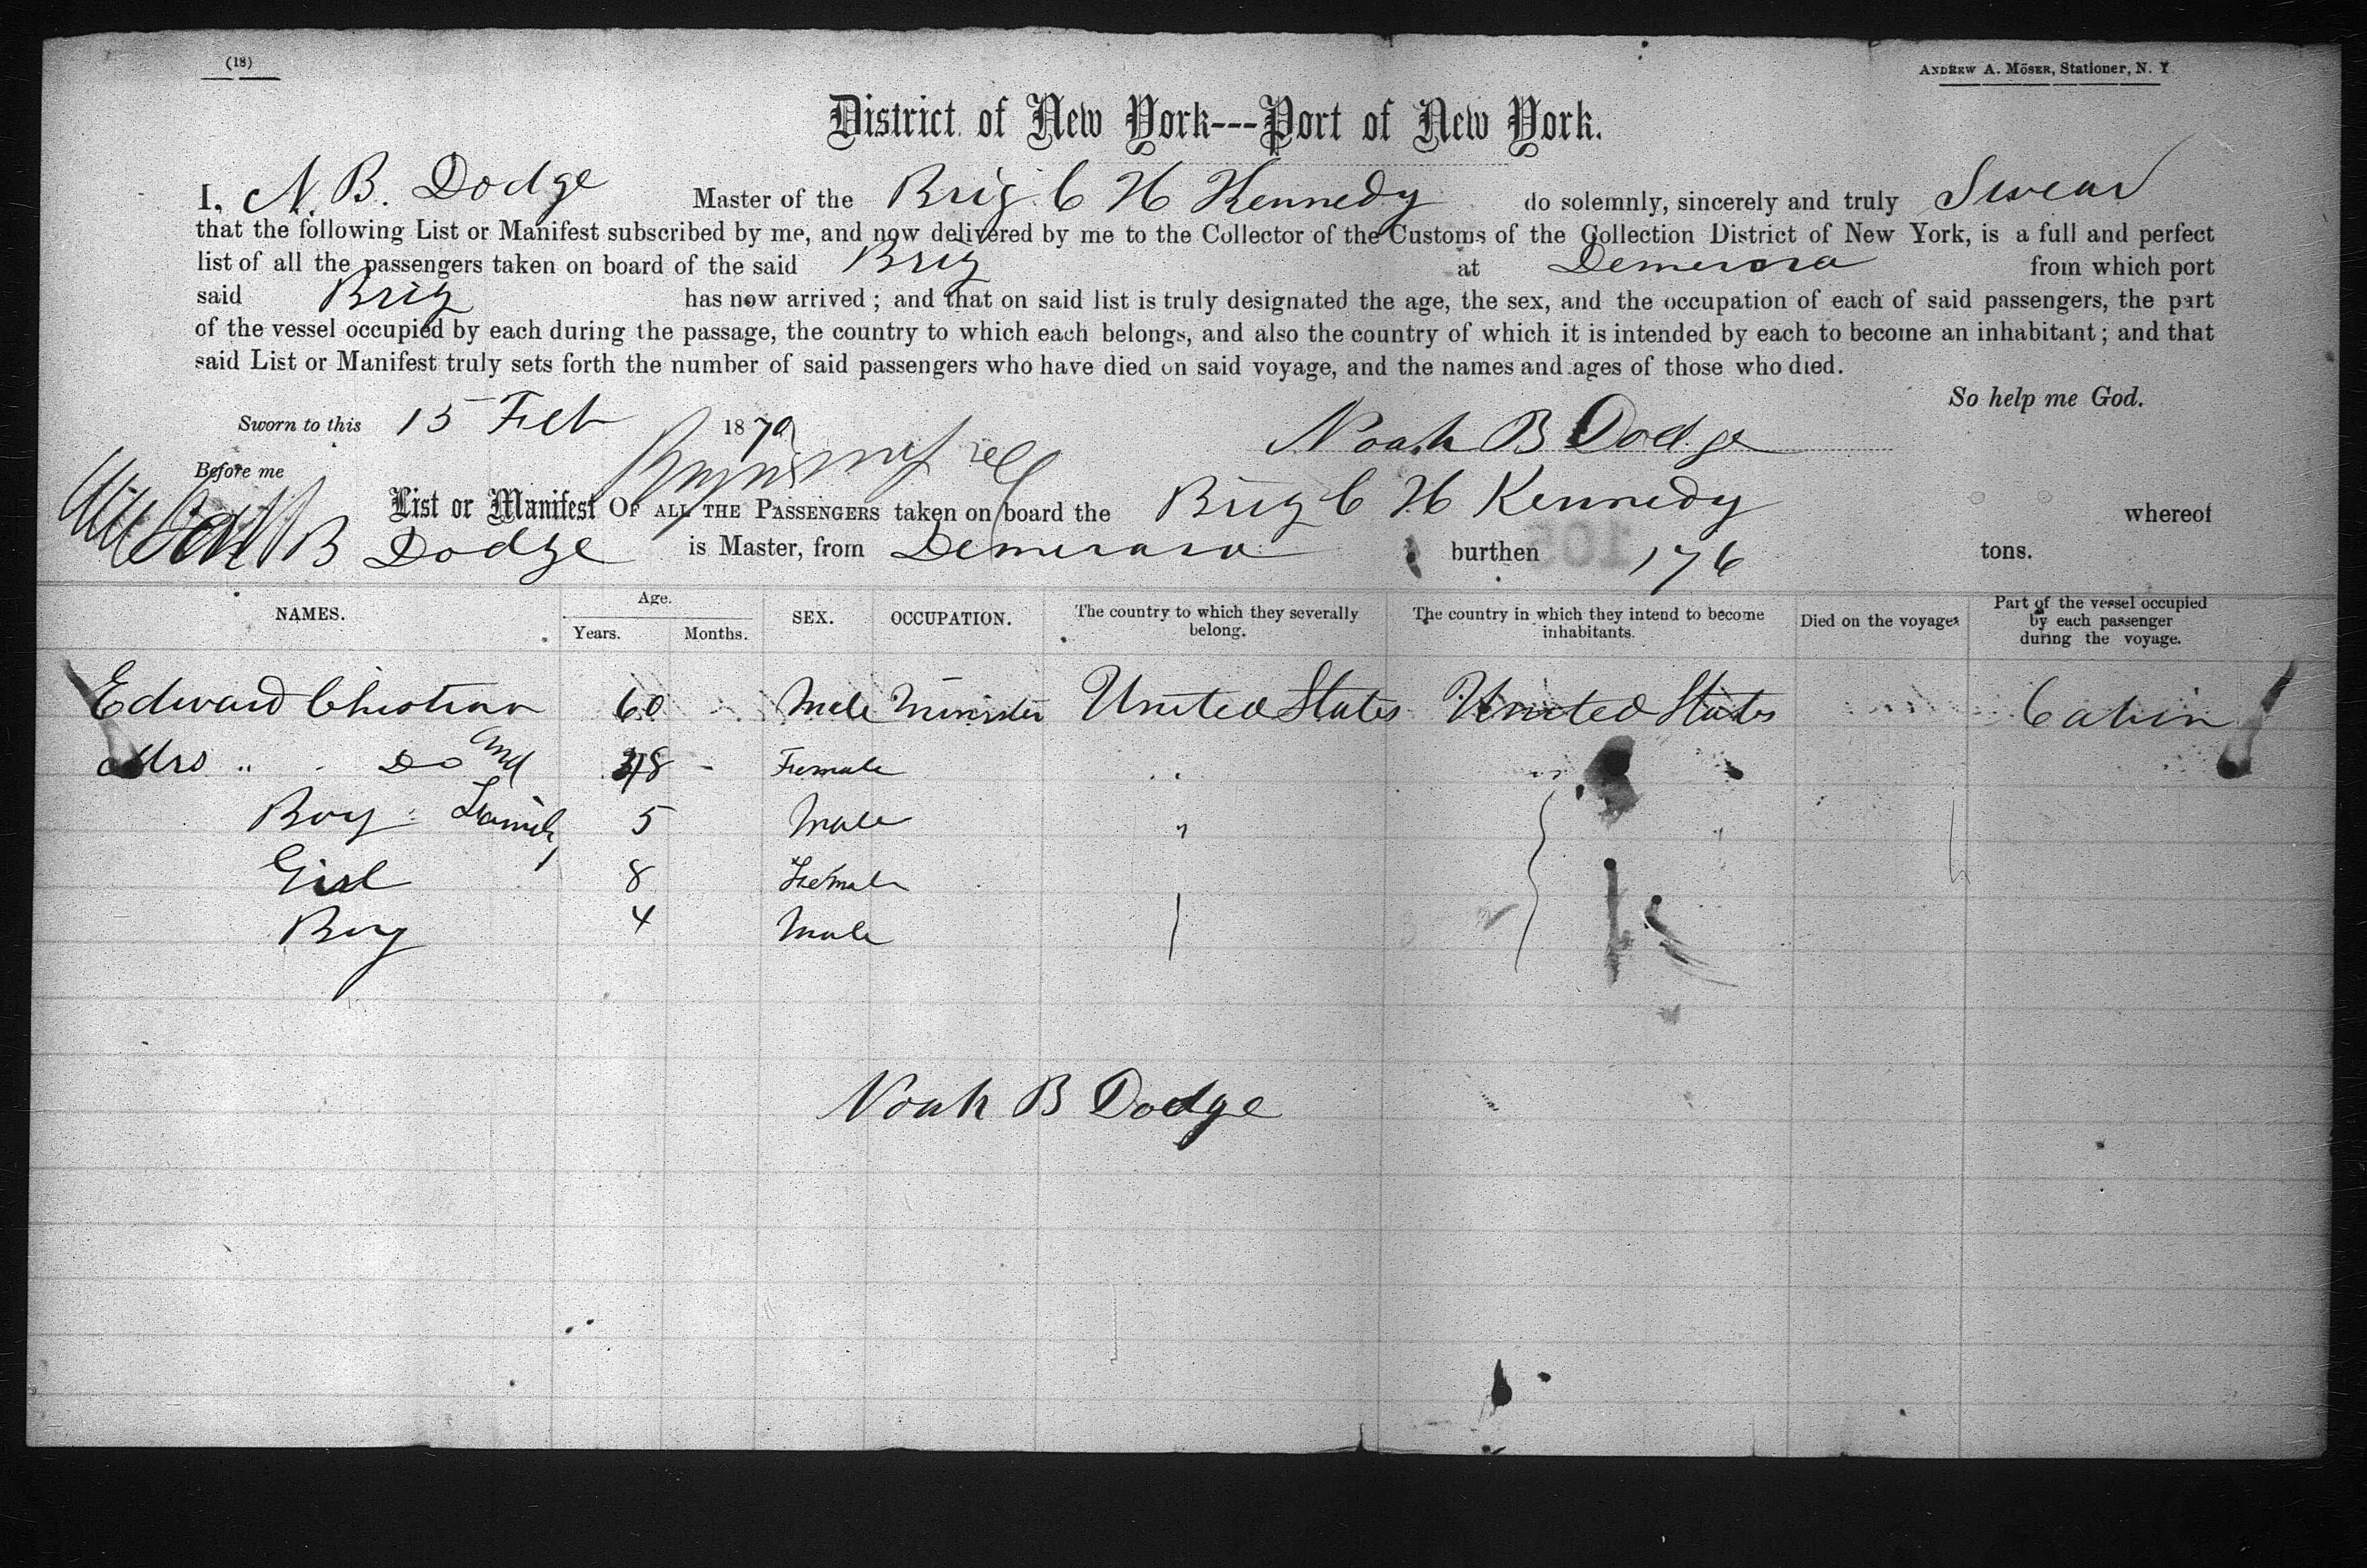 (18)
ANDREW A. MÖSER, Stationer, N. Y.
District of New York---Port of New York.
I, N. B. Dodge Master of the Brig C H Kennedy do solemnly, sincerely and truly Swear
that the following List or Manifest subscribed by me, and now delivered by me to the Collector of the Customs of the Collection District of New York, is a full and perfect
list of all the passengers taken on board of the said Brig at Demerara from which port
said Brig has now arrived; and that on said list is truly designated the age, the sex, and the occupation of each of said passengers, the part
of the vessel occupied by each during the passage, the country to which each belongs, and also the country of which it is intended by each to become an inhabitant; and that
said List or Manifest truly sets forth the number of said passengers who have died on said voyage, and the names and ages of those who died.
So help me God.
Sworn to this 15 Feb 1870 Noah B Dodge
Before me
List or Manifest OF ALL THE PASSENGERS taken on board the Brig C H Kennedy whereof
B Dodge is Master, from Demerara burthen 176 tons.
NAMES. Age. Years. Months. SEX. OCCUPATION. The country to which they severally belong. The country in which they intend to become inhabitants. Died on the voyage. Part of the vessel occupied by each passenger during the voyage.
Edward Christian 60 Male Minister United States United States Cabin
Mrs " Do and Female
Boy Family 5 Male "
Girl 8 Female
Boy 4 Male
Noah B Dodge